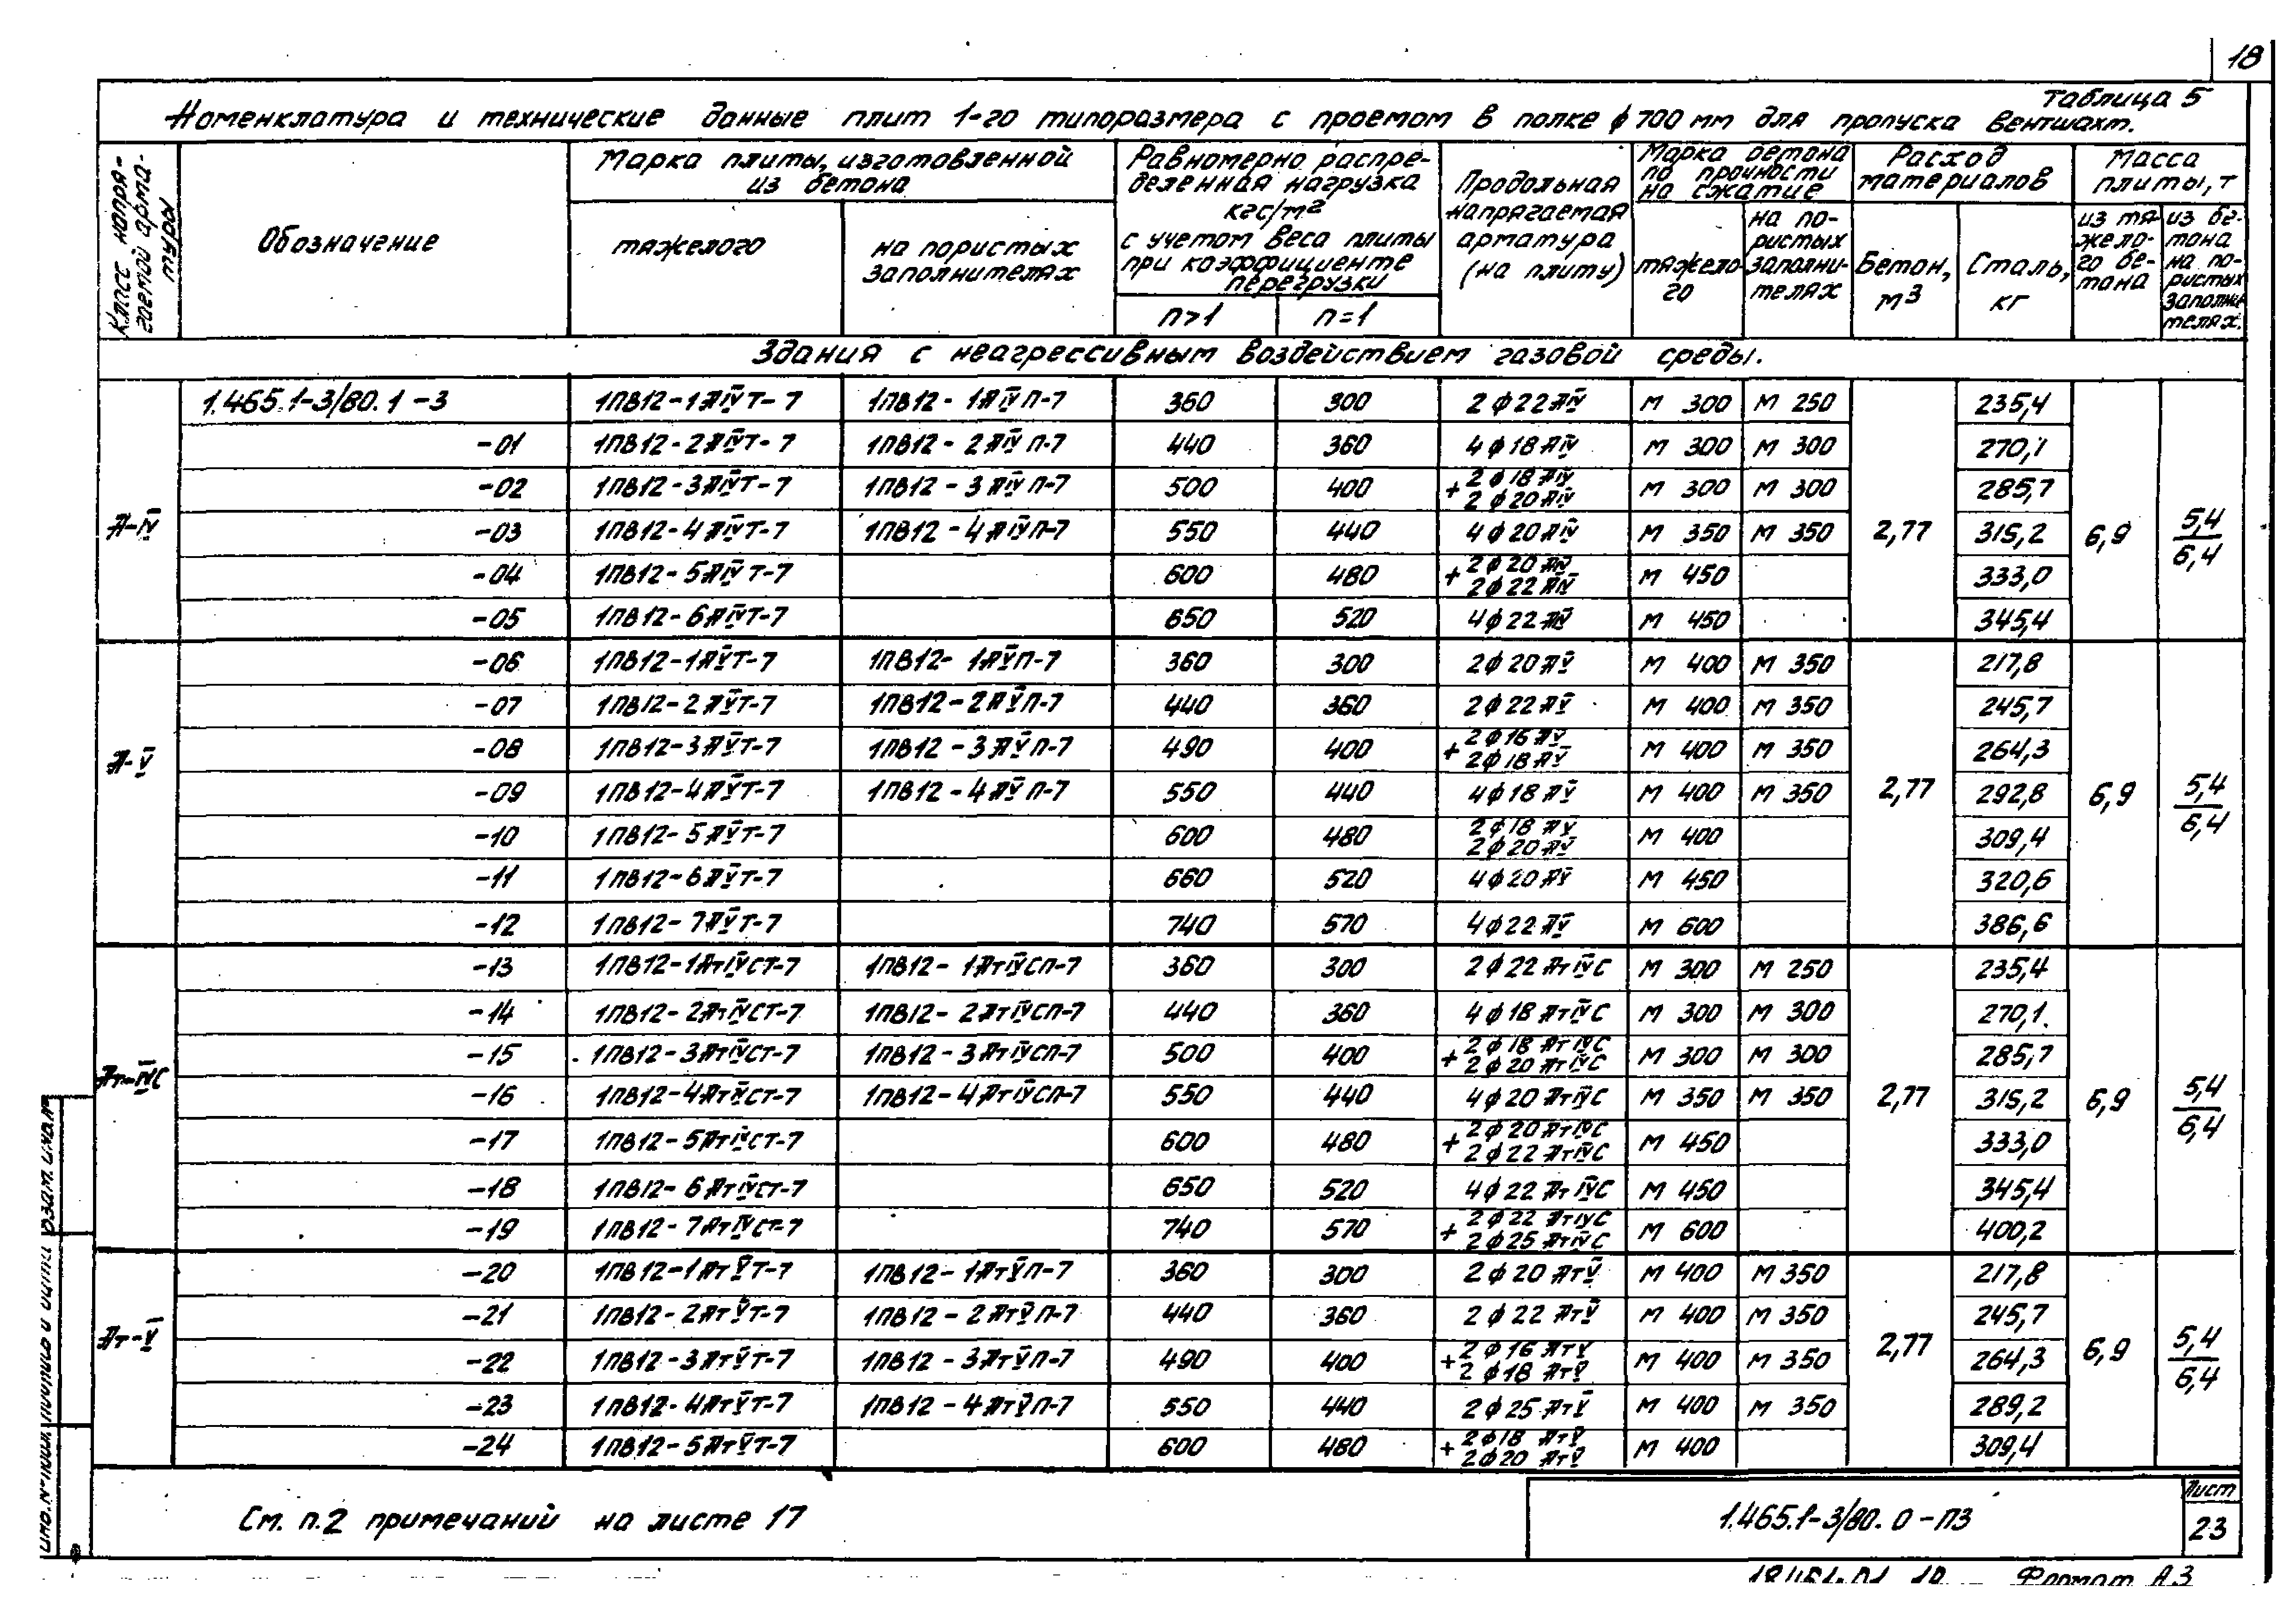 18
Таблица 5
Номенклатура и технические данные плит 1-го типоразмера с проемом в полке ϕ 700 мм для пропуска вентшахт.
Класс напрягаемой арматуры
Обозначение
Марка плиты, изготовленной из бетона
тяжелого
на пористых заполнителях
Равномерно распределенная нагрузка кгс/м² с учетом веса плиты при коэффициенте перегрузки
n>1
n=1
Продольная напрягаемая арматура (на плиту)
Марка бетона по прочности на сжатие
тяжелого
на пористых заполнителях
Расход материалов
Бетон, м3
Сталь, кг
Масса плиты, т
из тяжелого бетона
из бетона на пористых заполнителях.
Здания с неагрессивным воздействием газовой среды.
А-IV
1.465.1-3/80.1-3 1ПВ12-1АIVТ-7 1ПВ12-1АIVП-7 360 300 2ϕ22АIV М 300 М 250 235,4
-01 1ПВ12-2АIVТ-7 1ПВ12-2АIVП-7 440 360 4ϕ18АIV М 300 М 300 270,1
-02 1ПВ12-3АIVТ-7 1ПВ12-3АIVП-7 500 400 2ϕ18АIV + 2ϕ20АIV М 300 М 300 285,7
-03 1ПВ12-4АIVТ-7 1ПВ12-4АIVП-7 550 440 4ϕ20АIV М 350 М 350 2,77 315,2 6,9 5,4/6,4
-04 1ПВ12-5АIVТ-7 600 480 2ϕ20АIV + 2ϕ22АIV М 450 333,0
-05 1ПВ12-6АIVТ-7 650 520 4ϕ22АIV М 450 345,4
А-V
-06 1ПВ12-1АVТ-7 1ПВ12-1АVП-7 360 300 2ϕ20АV М 400 М 350 217,8
-07 1ПВ12-2АVТ-7 1ПВ12-2АVП-7 440 360 2ϕ22АV М 400 М 350 245,7
-08 1ПВ12-3АVТ-7 1ПВ12-3АVП-7 490 400 2ϕ16АV + 2ϕ18АV М 400 М 350 264,3
-09 1ПВ12-4АVТ-7 1ПВ12-4АVП-7 550 440 4ϕ18АV М 400 М 350 2,77 292,8 6,9 5,4/6,4
-10 1ПВ12-5АVТ-7 600 480 2ϕ18АV 2ϕ20АV М 400 309,4
-11 1ПВ12-6АVТ-7 660 520 4ϕ20АV М 450 320,6
-12 1ПВ12-7АVТ-7 740 570 4ϕ22АV М 600 386,6
Ат-IVС
-13 1ПВ12-1АтIVСТ-7 1ПВ12-1АтIVСП-7 360 300 2ϕ22АтIVС М 300 М 250 235,4
-14 1ПВ12-2АтIVСТ-7 1ПВ12-2АтIVСП-7 440 360 4ϕ18АтIVС М 300 М 300 270,1
-15 1ПВ12-3АтIVСТ-7 1ПВ12-3АтIVСП-7 500 400 2ϕ18АтIVС + 2ϕ20АтIVС М 300 М 300 285,7
-16 1ПВ12-4АтIVСТ-7 1ПВ12-4АтIVСП-7 550 440 4ϕ20АтIVС М 350 М 350 2,77 315,2 6,9 5,4/6,4
-17 1ПВ12-5АтIVСТ-7 600 480 2ϕ20АтIVС + 2ϕ22АтIVС М 450 333,0
-18 1ПВ12-6АтIVСТ-7 650 520 4ϕ22АтIVС М 450 345,4
-19 1ПВ12-7АтIVСТ-7 740 570 2ϕ22АтIVС + 2ϕ25АтIVС М 600 400,2
Ат-V
-20 1ПВ12-1АтVТ-7 1ПВ12-1АтVП-7 360 300 2ϕ20АтV М 400 М 350 217,8
-21 1ПВ12-2АтVТ-7 1ПВ12-2АтVП-7 440 360 2ϕ22АтV М 400 М 350 245,7
-22 1ПВ12-3АтVТ-7 1ПВ12-3АтVП-7 490 400 2ϕ16АтV + 2ϕ18АтV М 400 М 350 2,77 264,3 6,9 5,4/6,4
-23 1ПВ12-4АтVТ-7 1ПВ12-4АтVП-7 550 440 2ϕ25АтV М 400 М 350 289,2
-24 1ПВ12-5АтVТ-7 600 480 2ϕ18АтV + 2ϕ20АтV М 400 309,4
См. п.2 примечаний на листе 17
1.465.1-3/80.0-ПЗ
Лист
23
Формат А3
Взам. инв.№
Подпись и дата